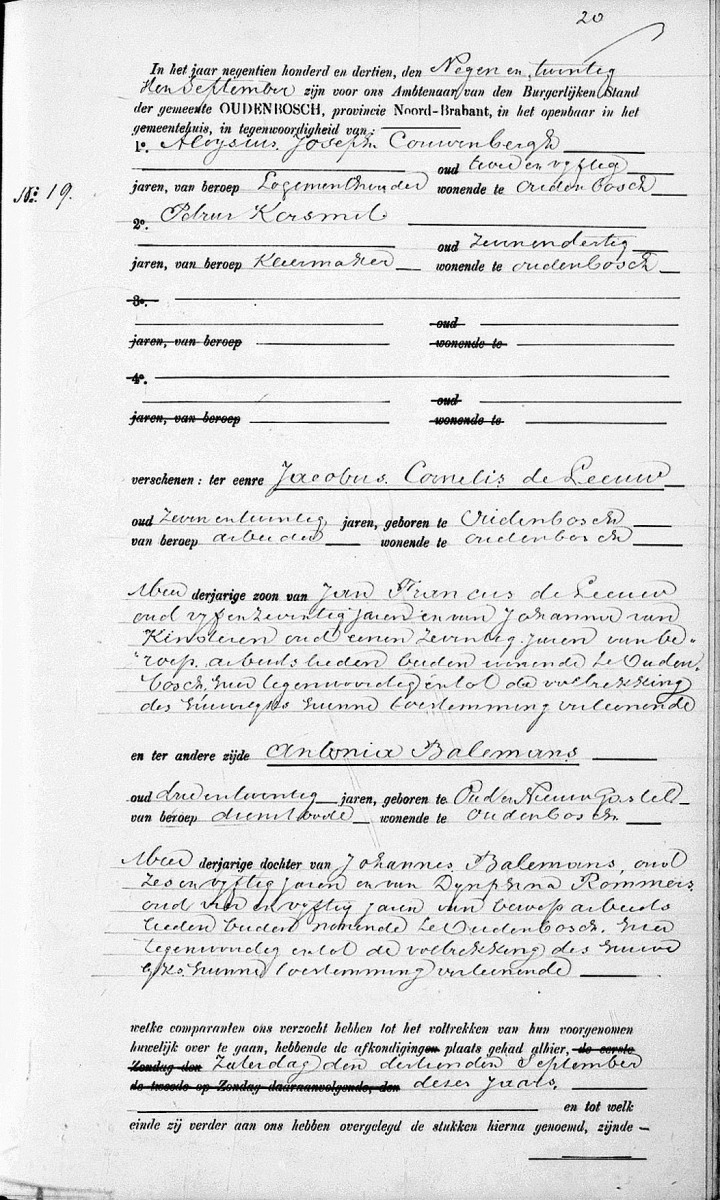 20
In het jaar negentien honderd en dertien, den Negen en twintig
sten September zijn voor ons Ambtenaar van den Burgerlijken Stand
der gemeente OUDENBOSCH, provincie Noord-Brabant, in het openbaar in het
gemeentehuis, in tegenwoordigheid van:
1o. Aloysius Joseph Couwenbergh
oud twee en vyftig
No: 19.
jaren, van beroep Logementhouder wonende te Oudenbosch
2o. Petrus Kersmit
oud zevenendertig
jaren, van beroep Kleermaker wonende te Oudenbosch
3o.
oud
jaren, van beroep wonende te
4o.
oud
jaren, van beroep wonende te
verschenen: ter eenre Jacobus Cornelis de Leeuw
oud Zevenentwintig jaren, geboren te Oudenbosch
van beroep arbeider wonende te Oudenbosch
Meer derjarige zoon van Jan Francus de Leeuw
oud vyf en zeventig jaren en van Johanna van
Kinsteren oud eenen zeventig jaren van be-
roep arbeidslieden beiden wonende te Ouden
bosch, hier tegenwoordig en tot de voltrekking
des huwelyks hunne toestemming verleenende
en ter andere zijde Antonia Balemans
oud drieentwintig jaren, geboren te Oud en Nieuw Gastel
van beroep dienstbode wonende te Oudenbosch
Meer derjarige dochter van Johannes Balemans, oud
zes en vyftig jaren en van Dynphna Rommers
oud vier en vyftig jaren van beroep arbeids
lieden beiden wonende te Oudenbosch, hier
tegenwoordig en tot de voltrekking des huwe
lyks hunne toestemming verleenende
welke comparanten ons verzocht hebben tot het voltrekken van hun voorgenomen
huwelijk over te gaan, hebbende de afkondigingen plaats gehad alhier, de eerste
Zondag den Zaterdag den dertienden September
de tweede op Zondag daaraanvolgende, den dezes Jaars.
en tot welk
einde zij verder aan ons hebben overgelegd de stukken hierna genoemd, zijnde